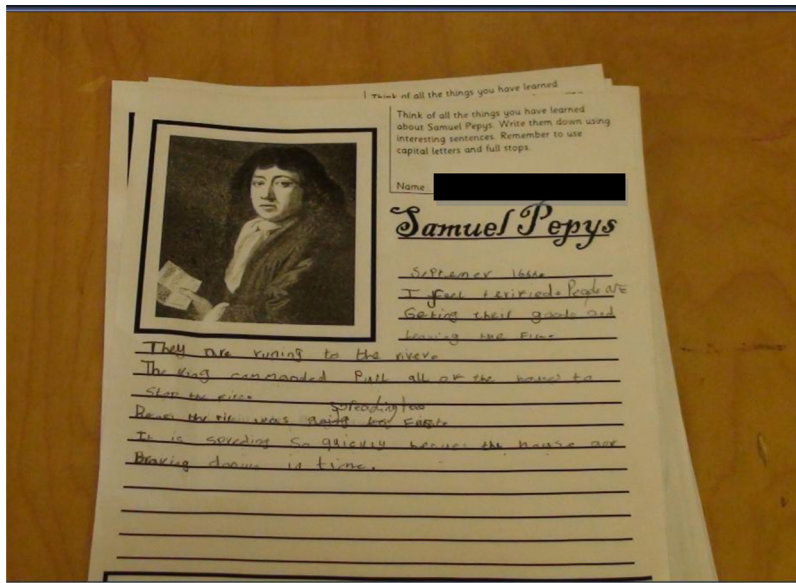 Think of all the things you have learned
Think of all the things you have learned
about Samuel Pepys. Write them down using
interesting sentences. Remember to use
capital letters and full stops.
Name:
Samuel Pepys
Septemer 1666.
I feel terified. People are
Geting their goods and
leaving the
They are runing to the river.
The king commanded Pull all of the houses to
Stop the fire.
the fire was spreading too
It is spreding So quickly the house are
Braking down in time.